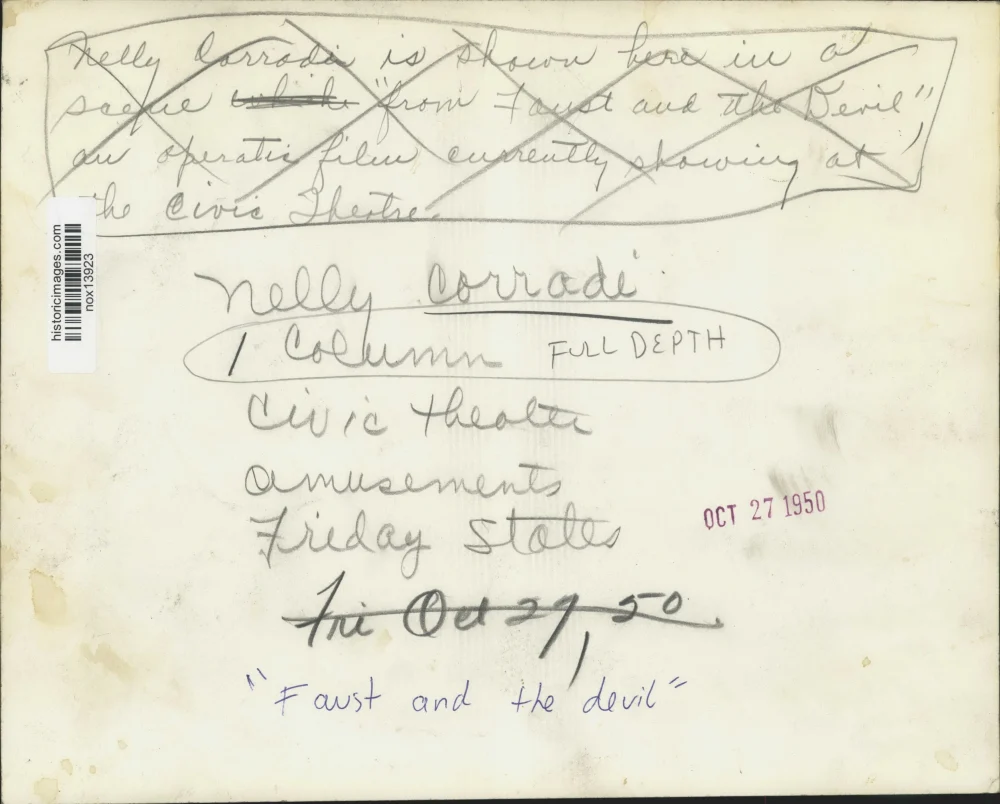 Nelly Corradi is shown here in a
scene which "from Faust and the Devil"
an operatic film currently showing at
the Civic Theatre.
historicimages.com
nox13923
Nelly Corradi
1 Column FULL DEPTH
Civic theater
amusements
Friday States
OCT 27 1950
Fri Oct 27, 50
"Faust and the devil"